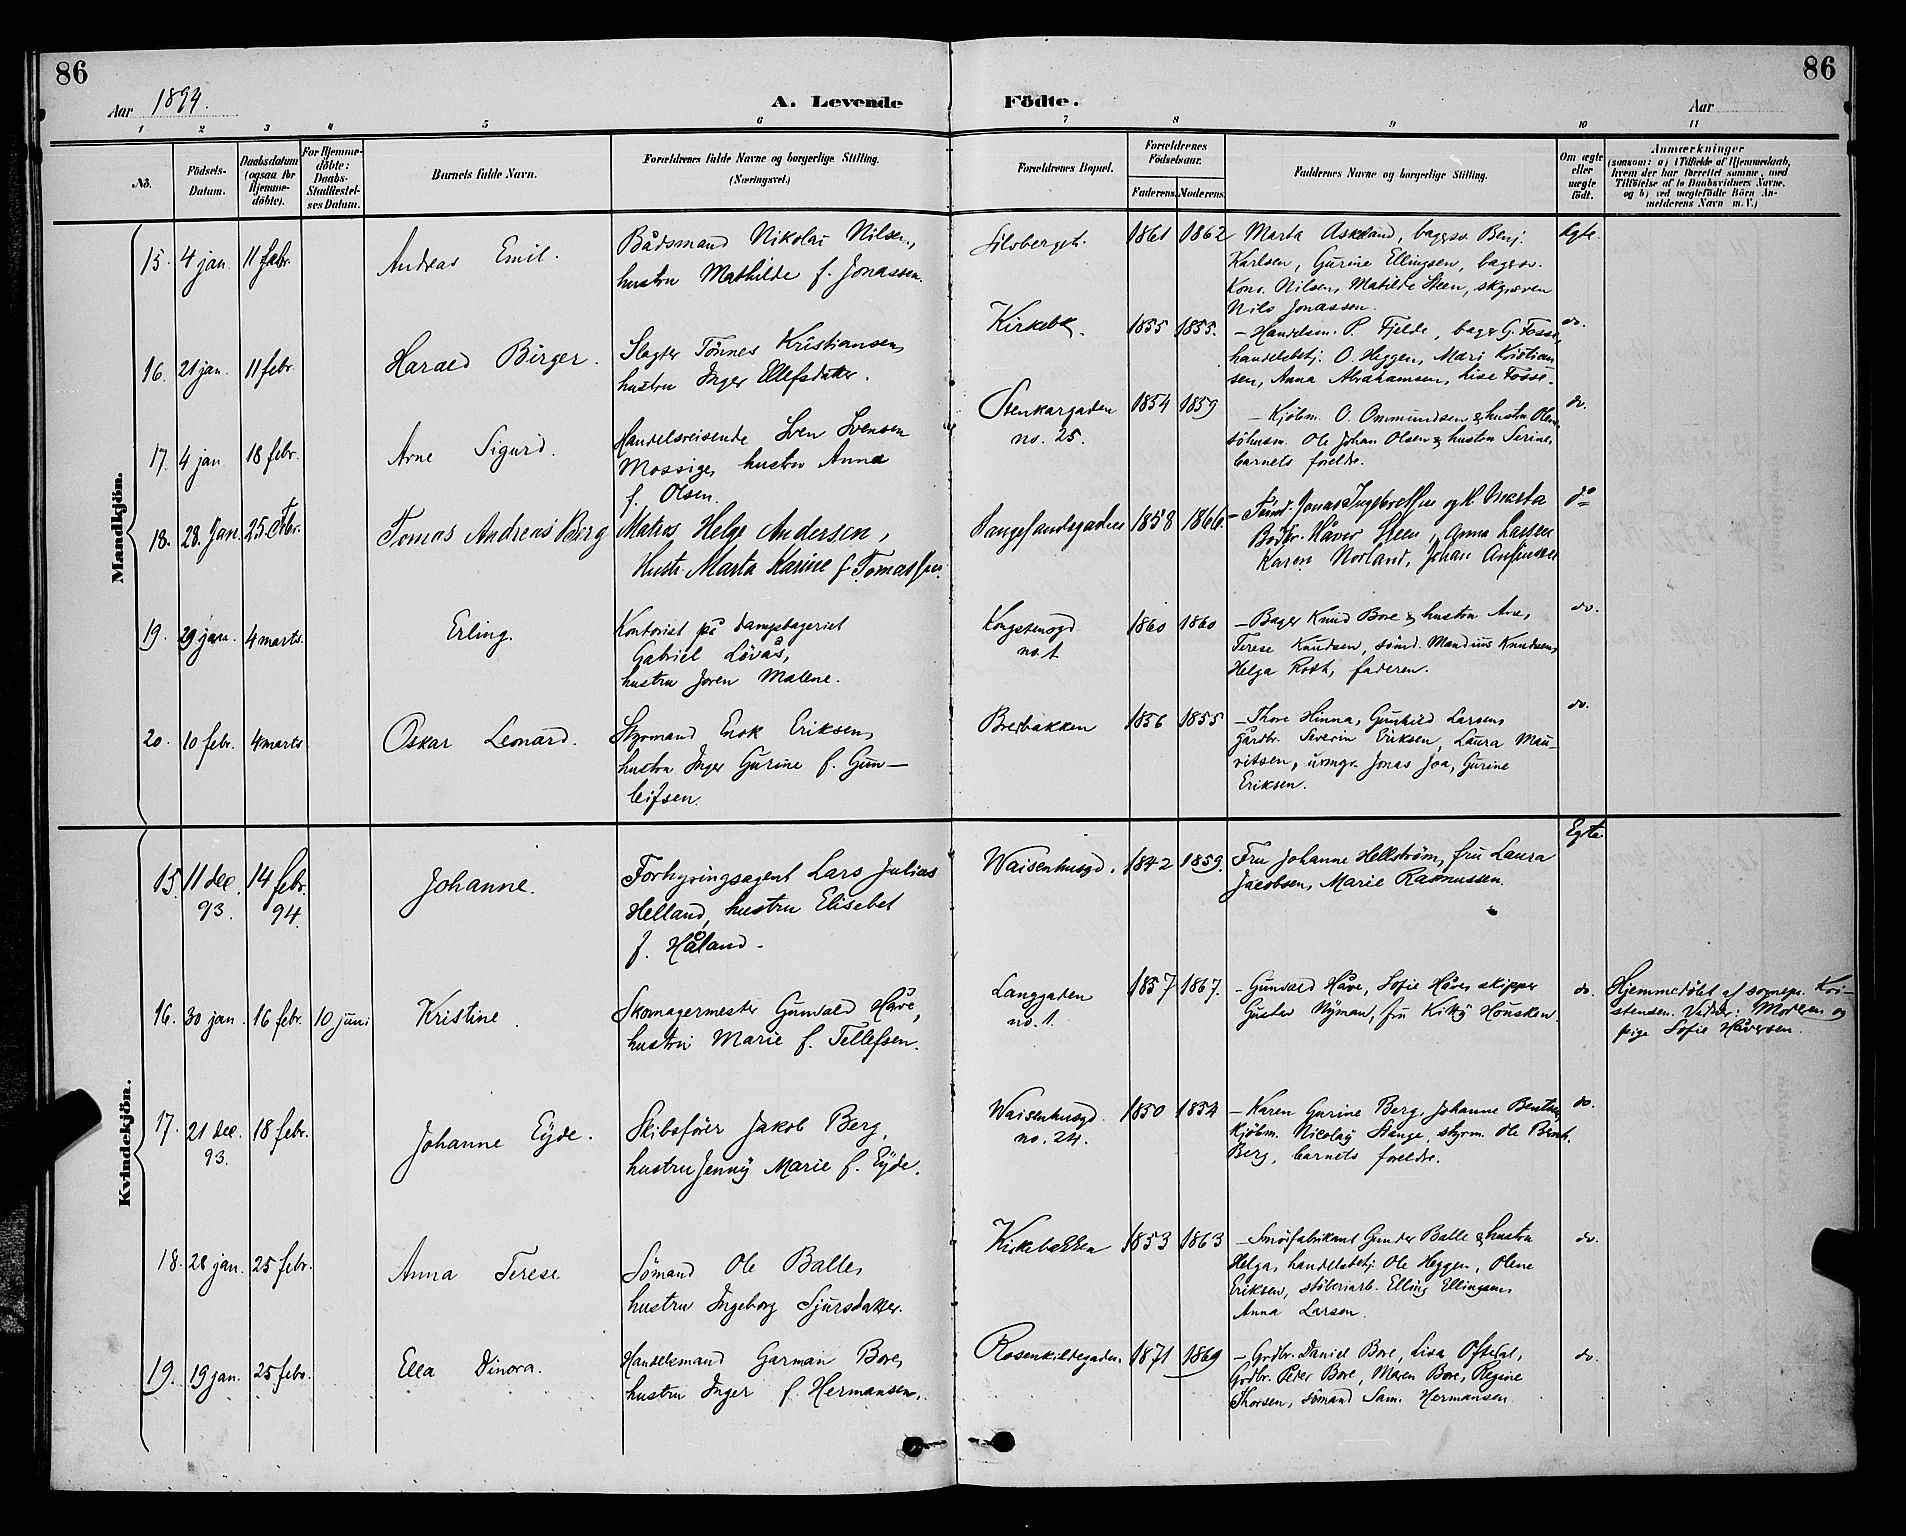 86
86
Aar 1894.
A. Levende
Födte.
Aar
1 2 3 4 5 6 7 8 9 10 11
No.
Födsels-Datum.
Daabsdatum (ogsaa for Hjemme-döbte).
For Hjemme-döbte: Daabs-Stadfæstel-ses Datum.
Barnets fulde Navn.
Forældrenes fulde Navne og borgerlige Stilling.
(Næringsvei.)
Forældrenes Bopæl.
Forældrenes Födselsaar.
Faderens. Moderens.
Faddernes Navne og borgerlige Stilling.
Om ægte eller uægte födt.
Anmærkninger
(saasom: a) i Tilfælde af Hjemmedaab, hvem der har forrettet samme, med Tilföielse af to Daabsvidners Navne, og b) ved uægtefödte Börn An-melderens Navn m. V.)
Mandkjön.
15. 4 jan. 11 febr. Andreas Emil.
Bådsmand Nikolai Nilsen,
hustru Mathilde f. Jonassen.
1861 1862
Marta Askeland, bagersv. Benj.
Karlsen, Gurine Ellingsen, bagersv.
Kons. Nilsen, Matilde Steen,
Nils Jonassen.
Egte.
16. 21 jan. 11 febr. Harald Birger.
Slagter Tönnes Kristiansen,
hustru Inger Ellefsdatter.
Kirkebk. 1855 1855.
– Handelsm. P. Fjelde, bager G. Fosse,
handelsbetj. O. Heggen, Mari Kristian
sen, Anna Abrahamsen, Lise Fosse.
do.
17. 4 jan. 18 febr. Arne Sigurd.
Handelsreisende Sven Svensen
Mossige, hustru Anna
f. Olsen.
Stenkargaden
no. 25.
1854 1859
– Kjöbm. O. Ommundsen & hustru Olene,
söhusm. Ole Johan Olsen & hustru Serine,
barnets foreldre.
do.
18. 28. Jan. 25 Febr. Tomas Andreas Berg
Matros Helge Andersen,
Hustr. Marta Karine f. Tomassen.
1858 1866.
– Sömd. Jonas Ingebretsen og H. Marta
Bodbr. Håver Steen, Anna Larsen
Karen Norland, Johan
do
19. 29 jan. 4 marts. Erling.
Kontorist på dampbageriet
Gabriel Lövås,
hustru Joren Malene.
Kongstensgd
no. 1.
1860 1860
– Bager Knud Bore & hustru Ane,
Terese Knudsen, sömd. Mandius Knudsen,
Helga Rott, faderen.
do.
20. 10 febr. 4 marts Oskar Leonard.
Styrmand Enok Eriksen,
hustru Inger Gurine f. Gun–
leifsen.
Brebakken 1856 1855
– Thore Hinna, Gunhild Larsen,
gårdbr. Severin Eriksen, Laura Mau–
ritsen, urmgr. Jonas Joa, Gurine
Eriksen.
do.
Kvindekjön.
15. 11 dec. 93. 14 febr. 94. Johanne.
Forhyringsagent Lars Julius
Helland, hustru Elisebet
f. Håland.
Waisenhusgd. 1842 1859.
Fru Johanne Hellström, fru Laura
Jacobsen, Marie Rasmussen.
Egte
16. 30 jan. 16 febr. 10 juni Kristine.
Skomagermester Gunvald Håve,
hustru Marie f. Tellefsen.
Langgaden
no. 1.
1857 1867.
– Gunvald Håve, Sofie Håver, skipper
Gustav Nyman, fru Kitty Housken.
do.
Hjemmedöbt af sognepr. Kri–
stensen. Vidner: Moderen og
pige Sofie Håversen.
17. 21 dec. 93. 18 febr. Johanne Eyde.
Skibsförer Jakob Berg,
hustru Jenny Marie f. Eyde.
Waisenhusgd.
no. 24.
1850 1854
– Karen Gurine Berg, Johanne Bentsen,
kjöbm. Nicolay Stange, styrm. Ole Bernh.
Berg, barnets foreldre.
do.
18. 28 jan. 25 febr. Anna Terese
Sömand Ole Balle,
hustru Ingeborg Sjursdatter.
Kirkebakken 1853 1863
– Smörfabrikant Gunder Balle & hustru
Helga, handelsbetj. Ole Heggen, Olene
Eriksen, stöberiarb. Elling Ellingsen,
Anna Larsen.
do.
19. 19 jan. 25 febr. Ella Dinora.
Handelsmand Garman Bore,
hustru Inger f. Hermansen.
Rosenkildegaden. 1871 1869
– Grdbr. Daniel Bore, Lisa Oftedal,
Grdbr. Peder Bore, Maren Bore, Regine
Thorsen, sömand Sam. Hermansen.
do.